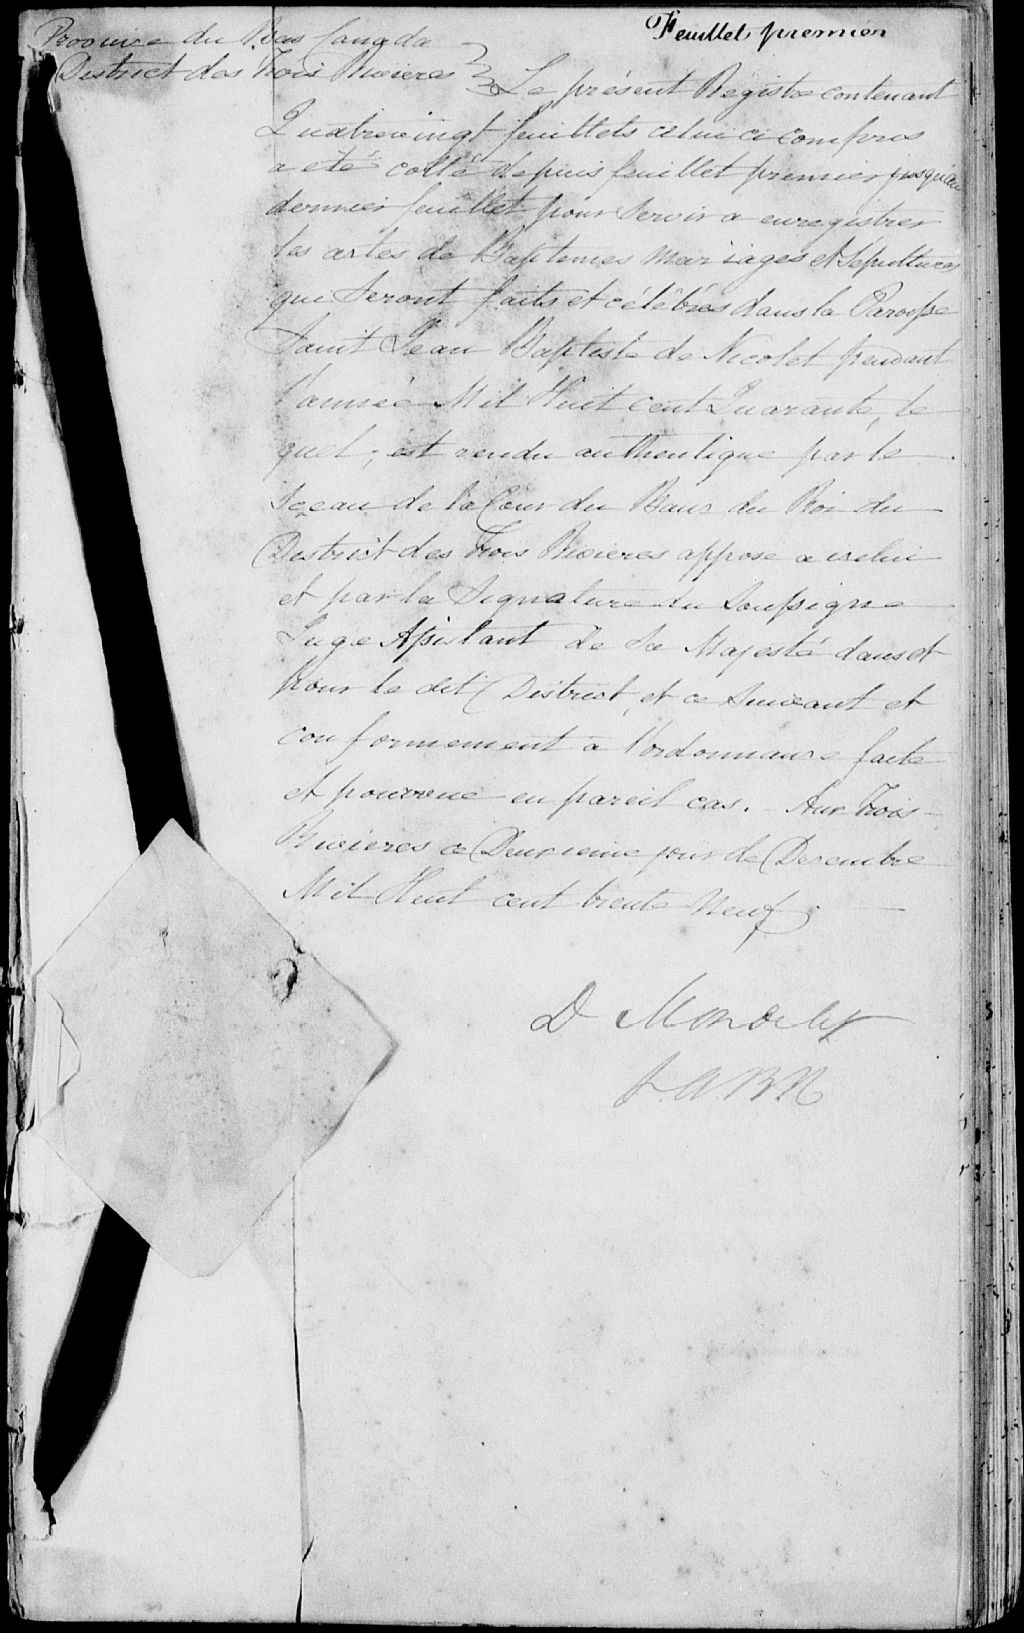 Feuillet premier
Province du Bas Canada
District des Trois Rivieres
Le présent Régistre contenant
Quatrevingt feuillets celui ci compris
a été cotté depuis feuillet premier jusqu'au
dernier feuillet pour Servir a enregistrer
les actes de Baptemes Mariages et Sépultures
qui Seront faits et célébrés dans la Paroisse
Saint Jean Baptiste de Nicolet pendant
l'année Mil Huit cent Quarante, le
quel, est rendu authentique par le
Sceau de la Cour du Banc du Roi du
District des Trois Rivieres apposé a icelui
et par la Signature du Soussigne
Juge Assistant de Sa Majesté dans et
pour le dit District, et ce Suivant et
conformement a l'ordonnance faite
et pourvue en pareil cas. Aux Trois
Rivieres ce Deuxieme jour de Decembre
Mil Huit cent trente Neuf
D Mondelet
J.A.B.R